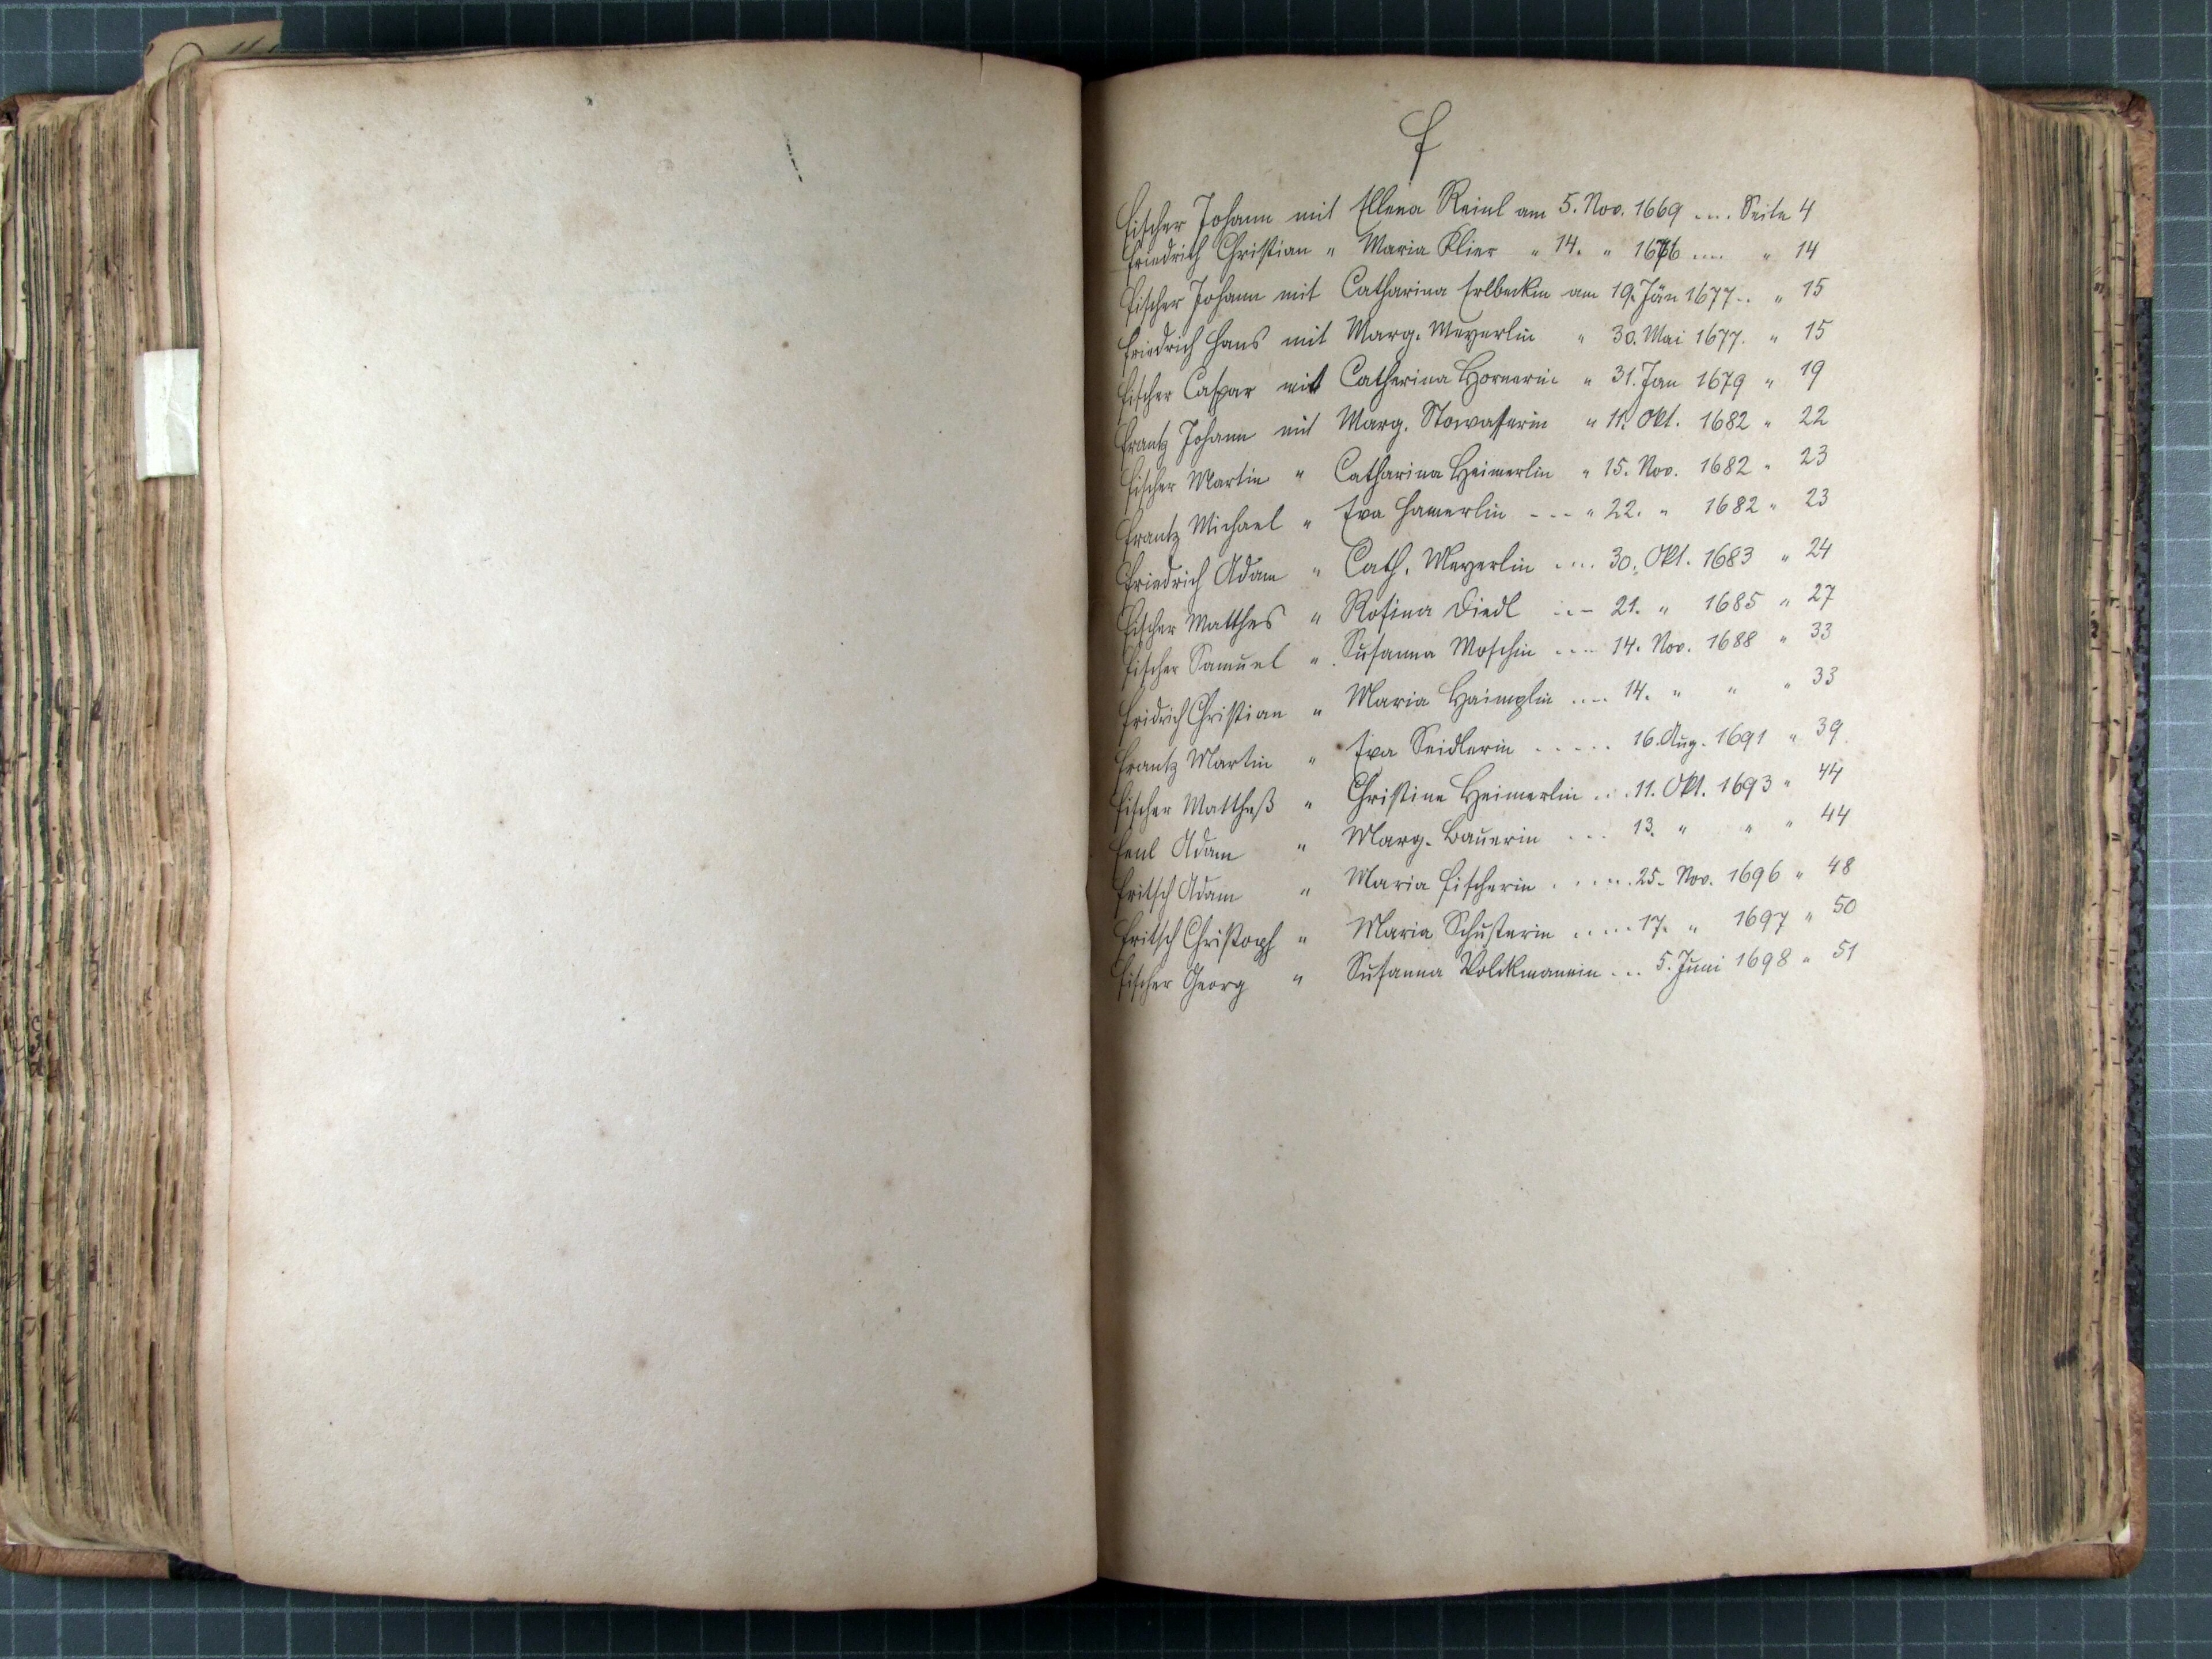 F
Fischer Johann mit Ellena Reinl am 5. Nov. 1669 .... Seite 4
Friedrich Christian " Maria Klier " 14. " 1676 .... " 14
Fischer Johann mit Catharina Erlbeckin am 19. Jän 1677 .. " 15
Friedrich Hans mit Marg. Meyerlin " 30. Mai 1677. " 15
Fischer Caspar mit Catharina Hornerin " 31. Jan 1679 " 19
Frantz Johann mit Marg. Stowasserin " 11. Okt. 1682 " 22
Fischer Martin " Catharina Heimerlin " 15. Nov. 1682 " 23
Frantz Michael " Eva Hamerlin --- " 22. " 1682 " 23
Friedrich Adam " Cath. Meyerlin .... 30. Okt. 1683 " 24
Fischer Matthes " Rosina Diedl ... 21. " 1685 " 27
Fischer Samuel " Susanna Moschin .... 14. Nov. 1688 " 33
Fridrich Christian " Maria Haimplin .... 14. " " " 33
Frantz Martin " Eva Seidlerin ..... 16. Aug. 1691 " 39
Fischer Mattheß " Christina Heimerlin ... 11. Okt. 1693 " 44
Adam " Marg. Bauerin ... 13. " " " 44
Fritsch Adam " Maria Fischerin ..... 25. Nov. 1696 " 48
Fritsch Christoph " Maria Schusterin ..... 17. " 1697 " 50
Fischer Georg " Susanna Volckmannin ... 5. Juni 1698 " 51